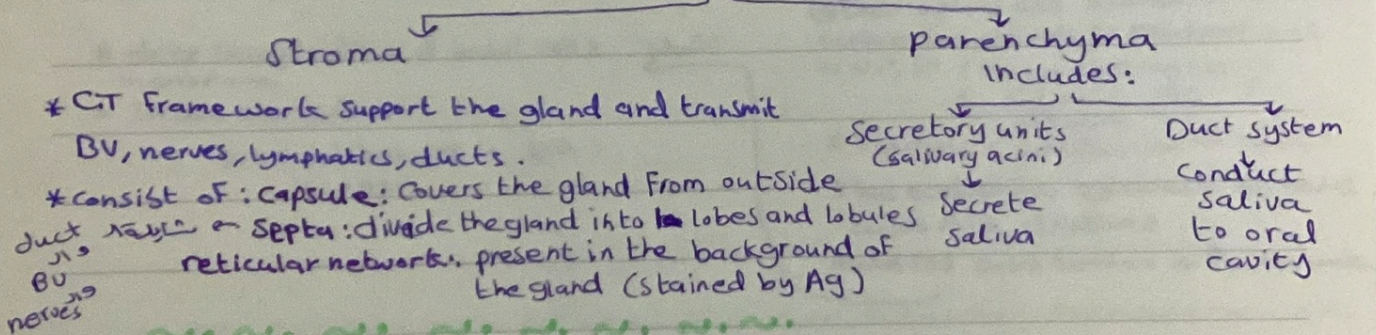 Stroma
* CT Framework support the gland and transmit
BV, nerves, lymphatics, ducts.
* consist of : capsule : Covers the gland From outside
septa : divide the gland into lobes and lobules
reticular network : present in the background of
the gland (stained by Ag)
duct
BV
nerves
Parenchyma
includes:
Secretory units
(salivary acini)
Secrete
saliva
Duct system
conduct
saliva
to oral
cavity